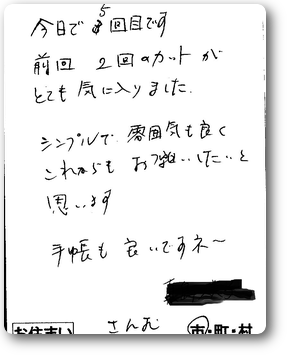 今日で5回目です
前回 2回のカットが
とても気に入りました.
シンプルで 雰囲気も良く
これからも お願いしたいと
思います
手帳も 良いですネ～
さんむ
お住まい 市・町・村